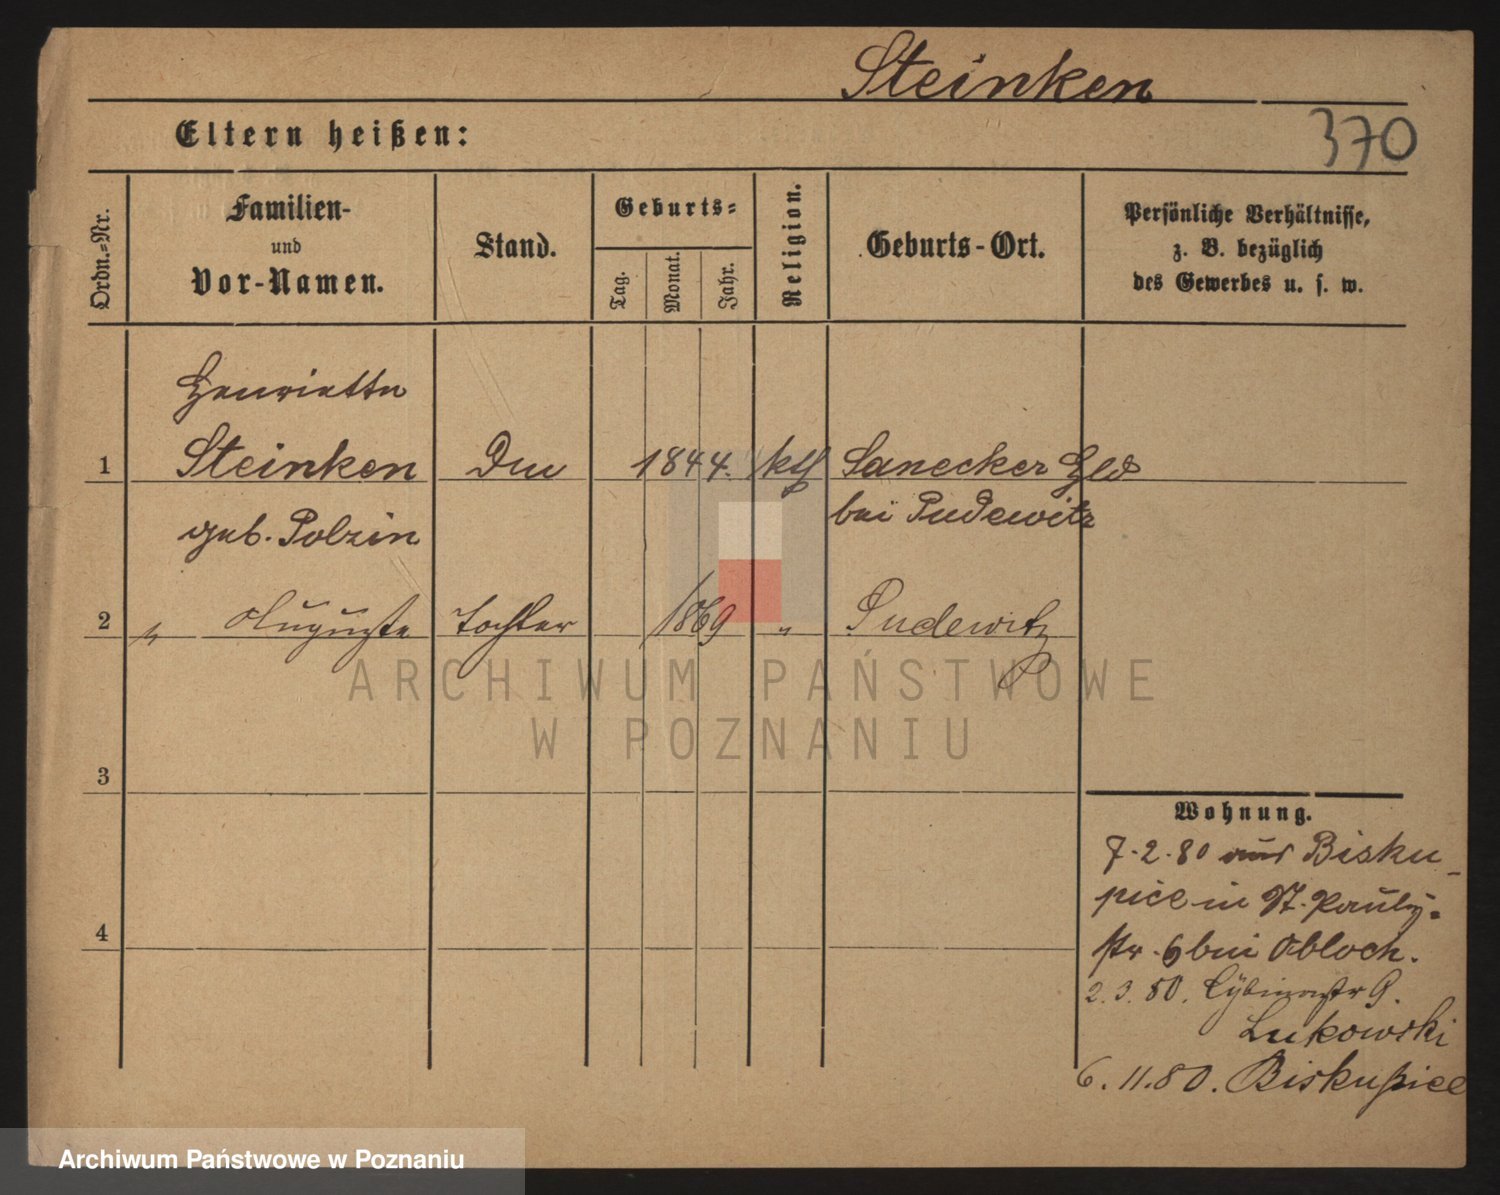 Steinken
Eltern heißen:
370
Ordn.-Nr.
Familien-
und
Vor-Namen.
Stand.
Geburts-
Tag.
Monat.
Jahr.
Religion.
Geburts-Ort.
Persönliche Verhältnisse,
z. B. bezüglich
des Gewerbes u. s. w.
Henriette
1 Steinken 1844. ktl Sanecker Hld
geb. Polzin bei Pudewitz
2 " Auguste Tochter 1869 " Pudewitz
ARCHIWUM PAŃSTWOWE
W POZNANIU
3
4
Wohnung.
7.2.80 aus Bisku-
pice in St. Pauly-
str. 6 bei Obloch.
2.3.80. Cybinastr 9.
Lukowski
6.11.80. Biskupice
Archiwum Państwowe w Poznaniu